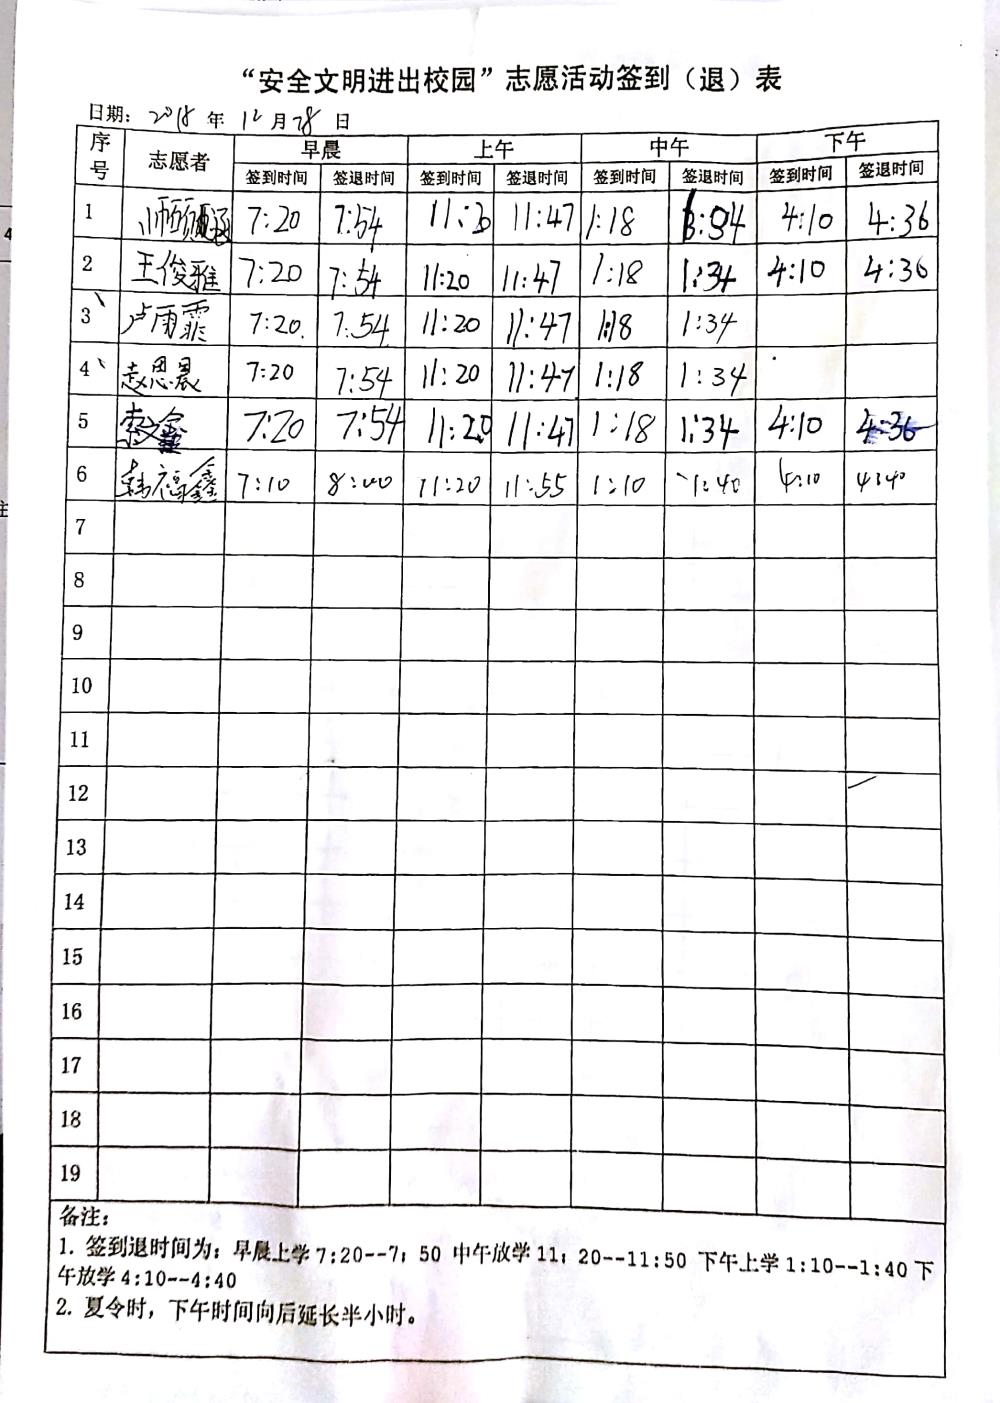 “安全文明进出校园”志愿活动签到（退）表
日期：2018年12月28日
序号 志愿者 早晨 上午 中午 下午
签到时间 签退时间 签到时间 签退时间 签到时间 签退时间 签到时间 签退时间
1 7:20 7:54 11:20 11:47 1:18 4:10 4:36
2 王俊雅 7:20 7:54 11:20 11:47 1:18 1:34 4:10 4:36
3 卢雨霏 7:20 7:54 11:20 11:47 1:18 1:34
4 赵思晨 7:20 7:54 11:20 11:47 1:18 1:34
5 7:20 7:54 11:20 11:47 1:18 1:34 4:10 4:36
6 韩福鑫 7:10 8:00 11:20 11:55 1:10 1:40 4:10 4:40
7
8
9
10
11
12
13
14
15
16
17
18
19
备注：
1. 签到退时间为：早晨上学7:20--7：50 中午放学11：20--11:50 下午上学1:10--1:40 下
午放学4:10--4:40
2. 夏令时，下午时间向后延长半小时。